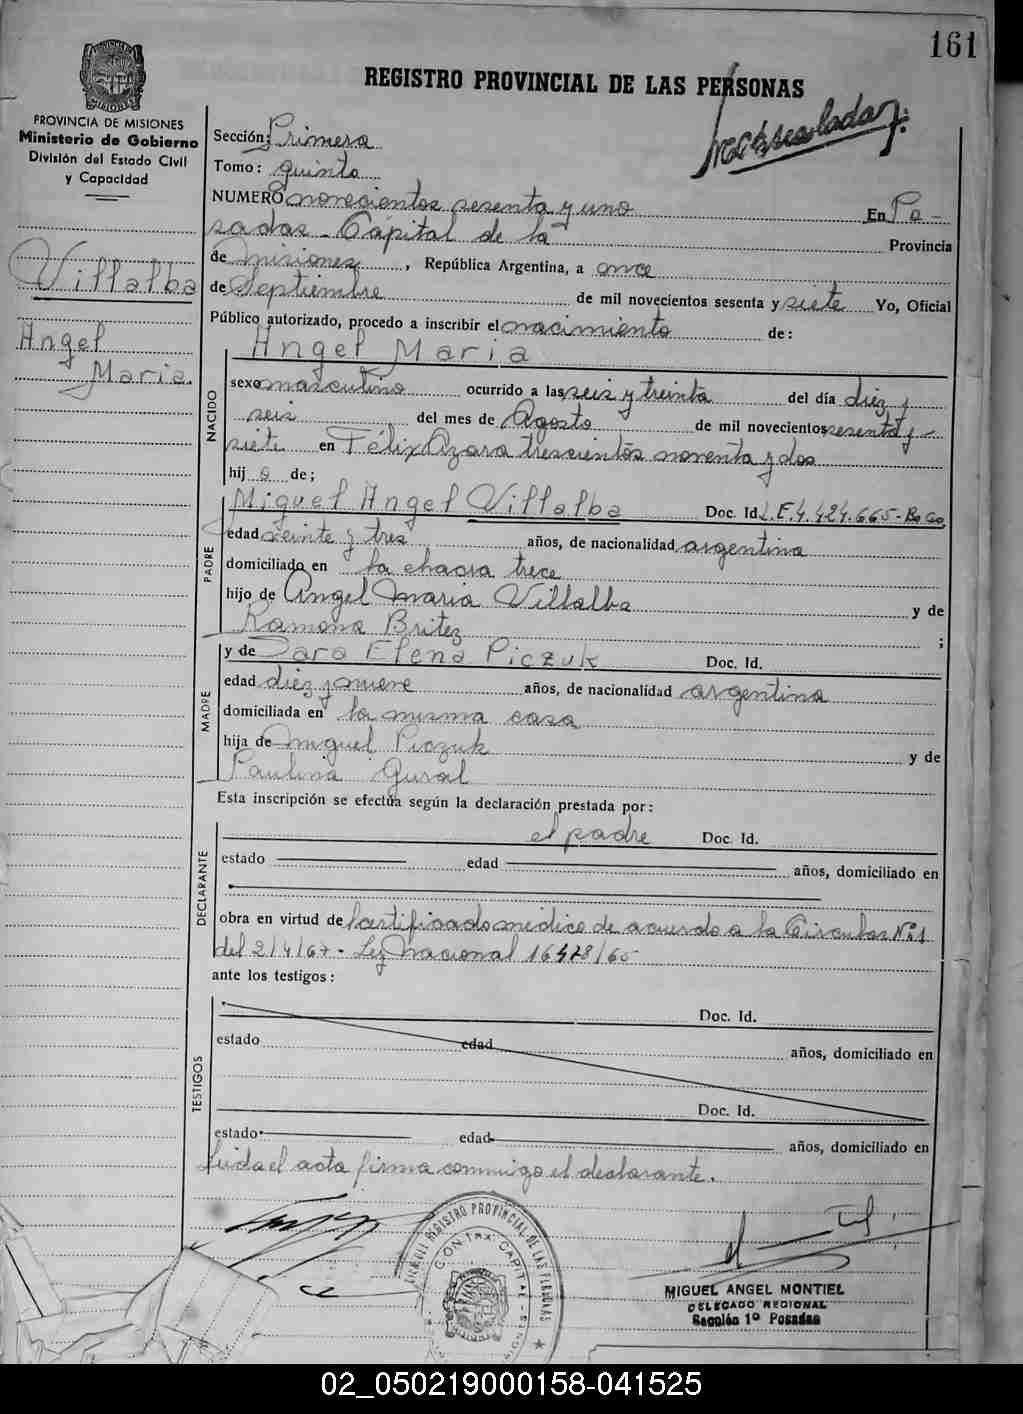 161
REGISTRO PROVINCIAL DE LAS PERSONAS
PROVINCIA DE MISIONES
Ministerio de Gobierno
División del Estado Civil
y Capacidad
Villalba
Angel
Maria.
Sección: Primera
Tomo: quinto
NUMERO novecientos sesenta y uno En Po-
sadas - Capital de la Provincia
de Misiones, República Argentina, a once
de Septiembre de mil novecientos sesenta y siete Yo, Oficial
Público autorizado, procedo a inscribir el nacimiento de:
Angel Maria
NACIDO
sexo masculino ocurrido a las seis y treinta del día diez y
seis del mes de Agosto de mil novecientos sesenta y -
siete en Félix Azara trescientos noventa y dos
hij o de;
Miguel Angel Villalba Doc. Id. L.E. 4.424.665-
PADRE
edad veinte y tres años, de nacionalidad argentina
domiciliado en la chacra trece
hijo de Angel Maria Villalba y de
Ramona Britez ;
y de Sara Elena Piczuk Doc. Id.
MADRE
edad diez y nueve años, de nacionalidad argentina
domiciliada en la misma casa
hija de Miguel Piczuk y de
Paulina Gural
Esta inscripción se efectúa según la declaración prestada por:
el padre Doc. Id.
DECLARANTE
estado edad años, domiciliado en
obra en virtud de certificado médico de acuerdo a la Circular Nº 1
del 2/4/67 - Ley Nacional 16478/65
ante los testigos:
TESTIGOS
Doc. Id.
estado edad años, domiciliado en
Doc. Id.
estado edad años, domiciliado en
Leida el acta firma conmigo el declarante.
REGISTRO PROVINCIAL DE LAS PERSONAS
CAPITAL
MIGUEL ANGEL MONTIEL
DELEGADO REGIONAL
Sección 1º Posadas
02_050219000158-041525